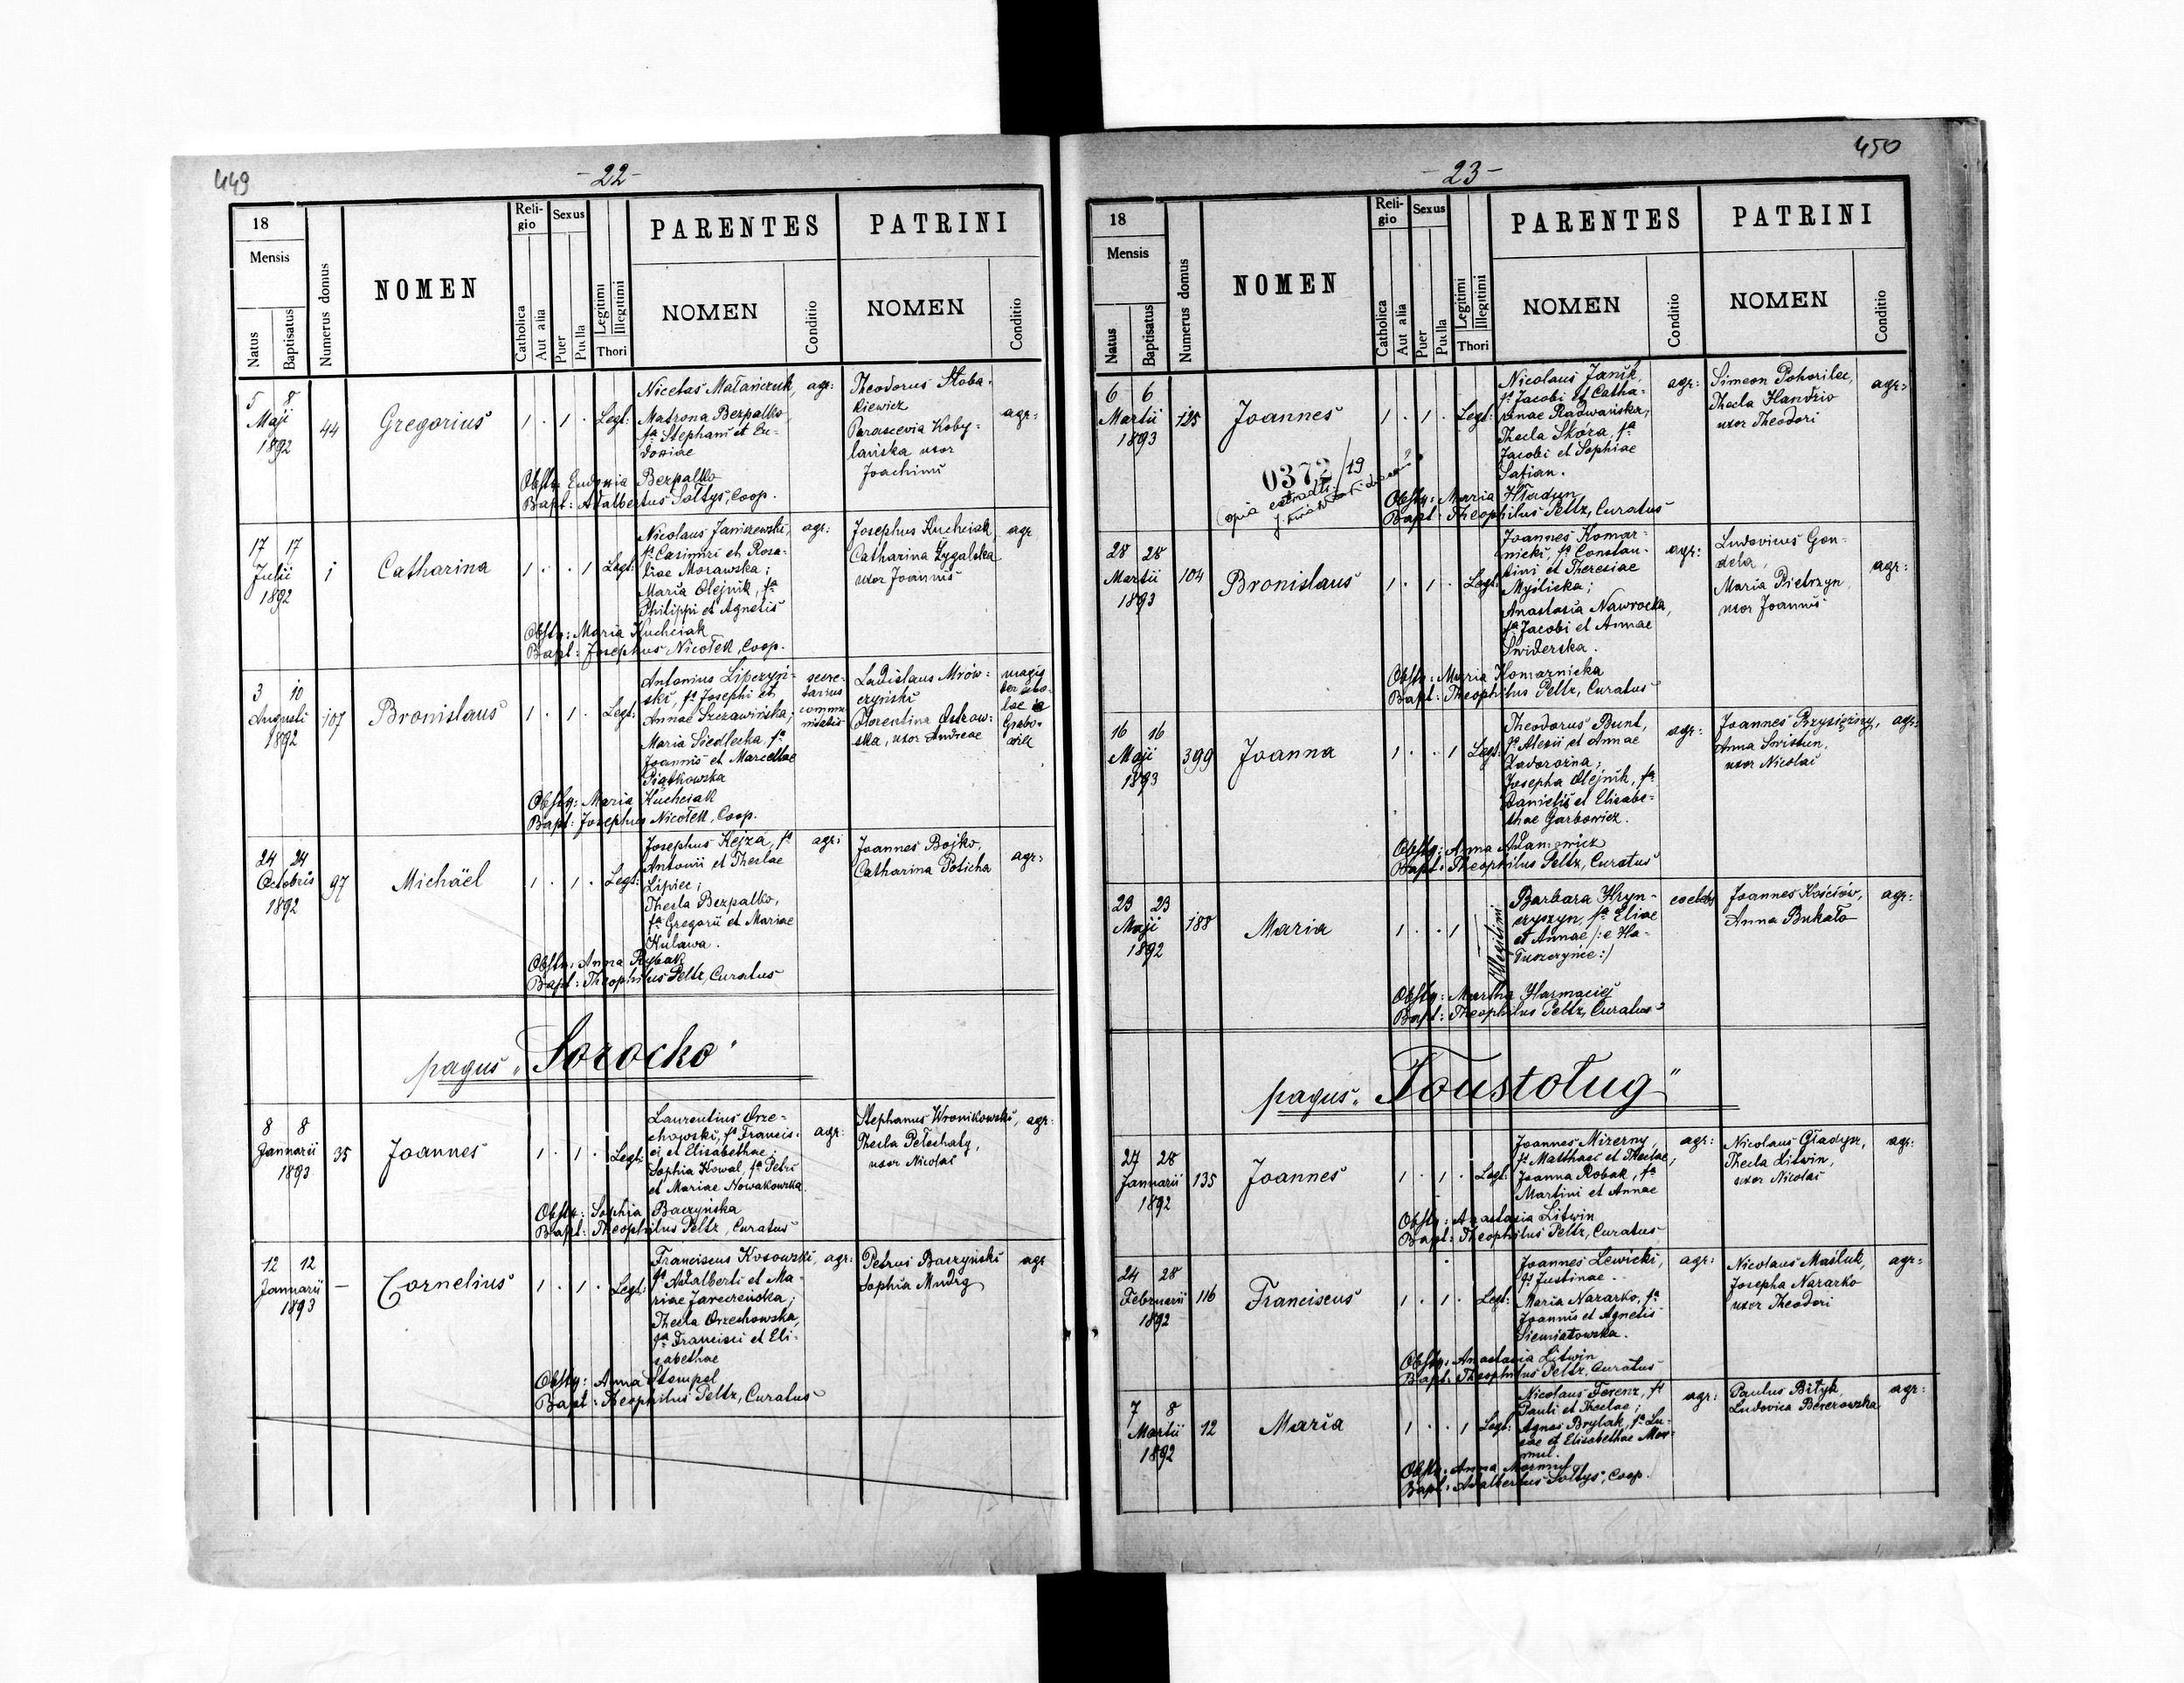 449
-22-
18
Mensis
Natus
Baptisatus
Numerus domus
NOMEN
Reli-
gio
Catholica
Aut alia
Sexus
Puer
Puella
Legitimi
Illegitimi
Thori
PARENTES
NOMEN
Conditio
PATRINI
NOMEN
Conditio
5 8
Maji
1892
44
Gregorius
1 . 1 . Legt:
Nicetas Matańczuk,
Matrona Bezpalko,
fa Stephani et Eu-
doxiae
agr:
Theodorus Stoba-
kiewicz
Parascevia Koby-
lańska uxor
Joachimi
agr:
Obstx: Eudoxia Bezpalko
Bapt: Adalbertus Sołtys, Coop.
17 17
Julii
1892
1
Catharina
1 . . 1 Legt:
Nicolaus Janiszewski,
fs Casimiri et Rosa-
liae Morawska;
Maria Olejnik, fa
Philippi et Agnetis
agr:
Josephus Kucheiak
Catharina Zygalska
uxor Joannis
agr
Obstx: Maria Kucheiak
Bapt: Josephus Nicołek, Coop.
3 10
Augusti
1892
107
Bronislaus
1 . 1 . Legt:
Antonius Lipczyń-
ski, fs Josephi et
Annae Szczawińska;
Maria Siedlecka, fa
Joannis et Marcellae
Piątkowska
secre-
tarius
commu-
nitatis
Ladislaus Mrów-
czyński
Florentina Ostrow-
ska, uxor Andreae
magis
ter scho-
lae in
Grabo-
Obstx: Maria Kucheiak
Bapt: Josephus Nicołek, Coop.
24 24
Octobris
1892
97
Michäel
1 . 1 . Legt:
Josephus Kejza, fs
Antonii et Theclae
Lipiec;
Thecla Bezpalko,
fa Gregorii et Mariae
Kulawa.
agr:
Joannes Bojko,
Catharina Poticha
agr:
Obstx: Anna Rybak
Bapt: Theophilus Peltz, Curatus
pagus „Sorocko"
8 8
Januarii
1893
35
Joannes
1 . 1 . Legt:
Laurentius Orze-
chowski, fs Francis-
ci et Elisabethae;
Sophia Kowal, fa Petri
et Mariae Nowakowska.
agr:
Stephanus Wronikowski,
Thecla Pełechaty,
uxor Nicolai
agr:
Obstx: Sophia Baczyńska
Bapt: Theophilus Peltz, Curatus
12 12
Januarii
1893
—
Cornelius
1 . 1 . Legt:
Franciscus Kosowski,
fs Adalberti et Ma-
riae Jareczeńska;
Thecla Orzechowska,
fa Francisci et Eli-
sabethae
agr:
Petrus Baczyński
Sophia Mudrg
agr
Obstx: Anna Stempel
Bapt: Theophilus Peltz, Curatus
450
-23-
18
Mensis
Natus
Baptisatus
Numerus domus
NOMEN
Reli-
gio
Catholica
Aut alia
Sexus
Puer
Puella
Legitimi
Illegitimi
Thori
PARENTES
NOMEN
Conditio
PATRINI
NOMEN
Conditio
6 6
Martii
1893
125
Joannes
1 . 1 . Legt:
Nicolaus Janik,
fs Jacobi et Catha-
rinae Radwańska,
Thecla Skóra, fa
Jacobi et Sophiae
Safian.
agr:
Simeon Pohorilec,
Thecla Handzio
uxor Theodori
agr:
0372/19
Obstx: Maria Hładyn
Bapt: Theophilus Peltz, Curatus
28 28
Martii
1893
104
Bronislaus
1 . 1 . Legt:
Joannes Komar-
nicki, fs Constan-
tini et Theresiae
Myślicka;
Anastasia Nawrocka,
fa Jacobi et Annae
Świderska.
agr:
Ludovicus Gon-
dela,
Maria Pietrzyn
uxor Joannis
agr:
Obstx: Maria Komarnicka
Bapt: Theophilus Peltz, Curatus
16 16
Maji
1893
399
Joanna
1 . . 1 Legt:
Theodorus Bunt,
fs Alexii et Annae
Zadorożna;
Josepha Olejnik, fa
Danielis et Elisabe-
thae Garbowicz.
agr:
Joannes Przysiężny,
Anna Swistun,
uxor Nicolai
agr:
Obstx: Anna Adamowicz
Bapt: Theophilus Peltz, Curatus
23 23
Maji
1892
188
Maria
1 . . 1
Illegitimi
Barbara Hryn-
czyszyn, fa Eliae
et Annae /: e Ha-
łuszczyńce :/
Joannes Kościów,
Anna Bukało
agr:
Obstx: Martha Harmaciej
Bapt: Theophilus Peltz, Curatus
pagus „Toustoług"
27 28
Januarii
1892
135
Joannes
1 . 1 . Legt:
Joannes Mizerny,
fs Matthaei et Theclae,
Joanna Robak, fa
Martini et Annae
agr:
Nicolaus Gładyn,
Thecla Litwin,
uxor Nicolai
agr:
Obstx: Anastasia Litwin
Bapt: Theophilus Peltz, Curatus
24 28
Februarii
1892
116
Franciscus
1 . 1 . Legt:
Joannes Lewicki,
fs Justinae.
Maria Nazarko, fa
Joannis et Agnetis
Siemiatowska.
agr:
Nicolaus Maśluk,
Josepha Nazarko
uxor Theodori
agr:
Obstx: Anastasia Litwin
Bapt: Theophilus Peltz, Curatus
7 8
Martii
1892
12
Maria
1 . . 1 Legt:
Nicolaus Ferenz, fs
Pauli et Theclae;
Agnes Brylak, fa Lu-
cae et Elisabethae Mor-
mul.
agr:
Paulus Bityk,
Ludovica Berezowska
agr:
Obstx: Anna Mormul
Bapt: Adalbertus Sołtys, Coop.